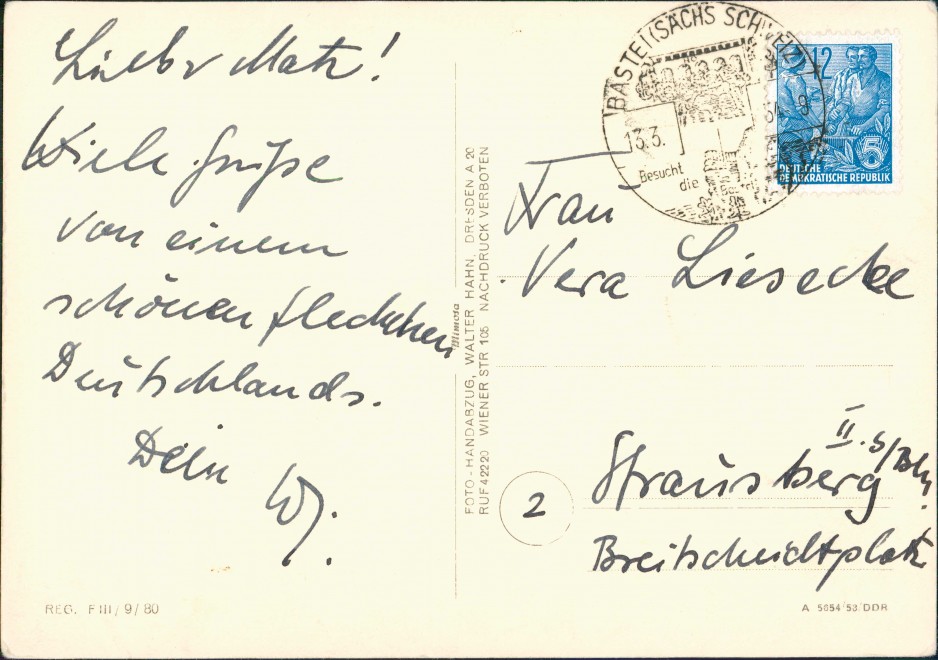 Lieber Matz!
Viele Grüße
von einem
schönen Fleckchen
Deutschlands.
Dein
W.
REG. F III/9/80
FOTO-HANDABZUG, WALTER HAHN, DRESDEN A 20
RUF 42220 WIENER STR 105 NACHDRUCK VERBOTEN
Mimosa
BASTEI (SÄCHS SCHWEIZ)
13.3.
Besucht
die
12
5
DEUTSCHE
DEMOKRATISCHE REPUBLIK
Frau
Vera Liesecke
2
Strausberg II. b/Bln.
Breitscheidtplatz
A 5054/53/DDR